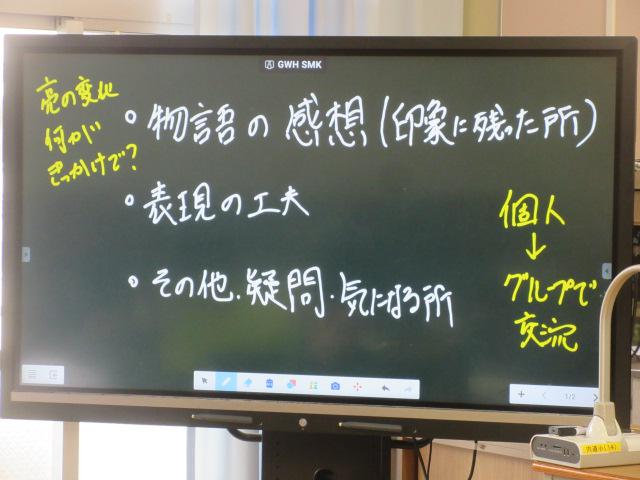 GWH SMK
亮の変化
何が
きっかけで?
・物語の感想(印象に残った所)
・表現の工夫
・その他.疑問・気になる所
個人
↓
グループで
交流
1/2